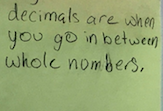 decimals are when
you go in between
whole numbers.